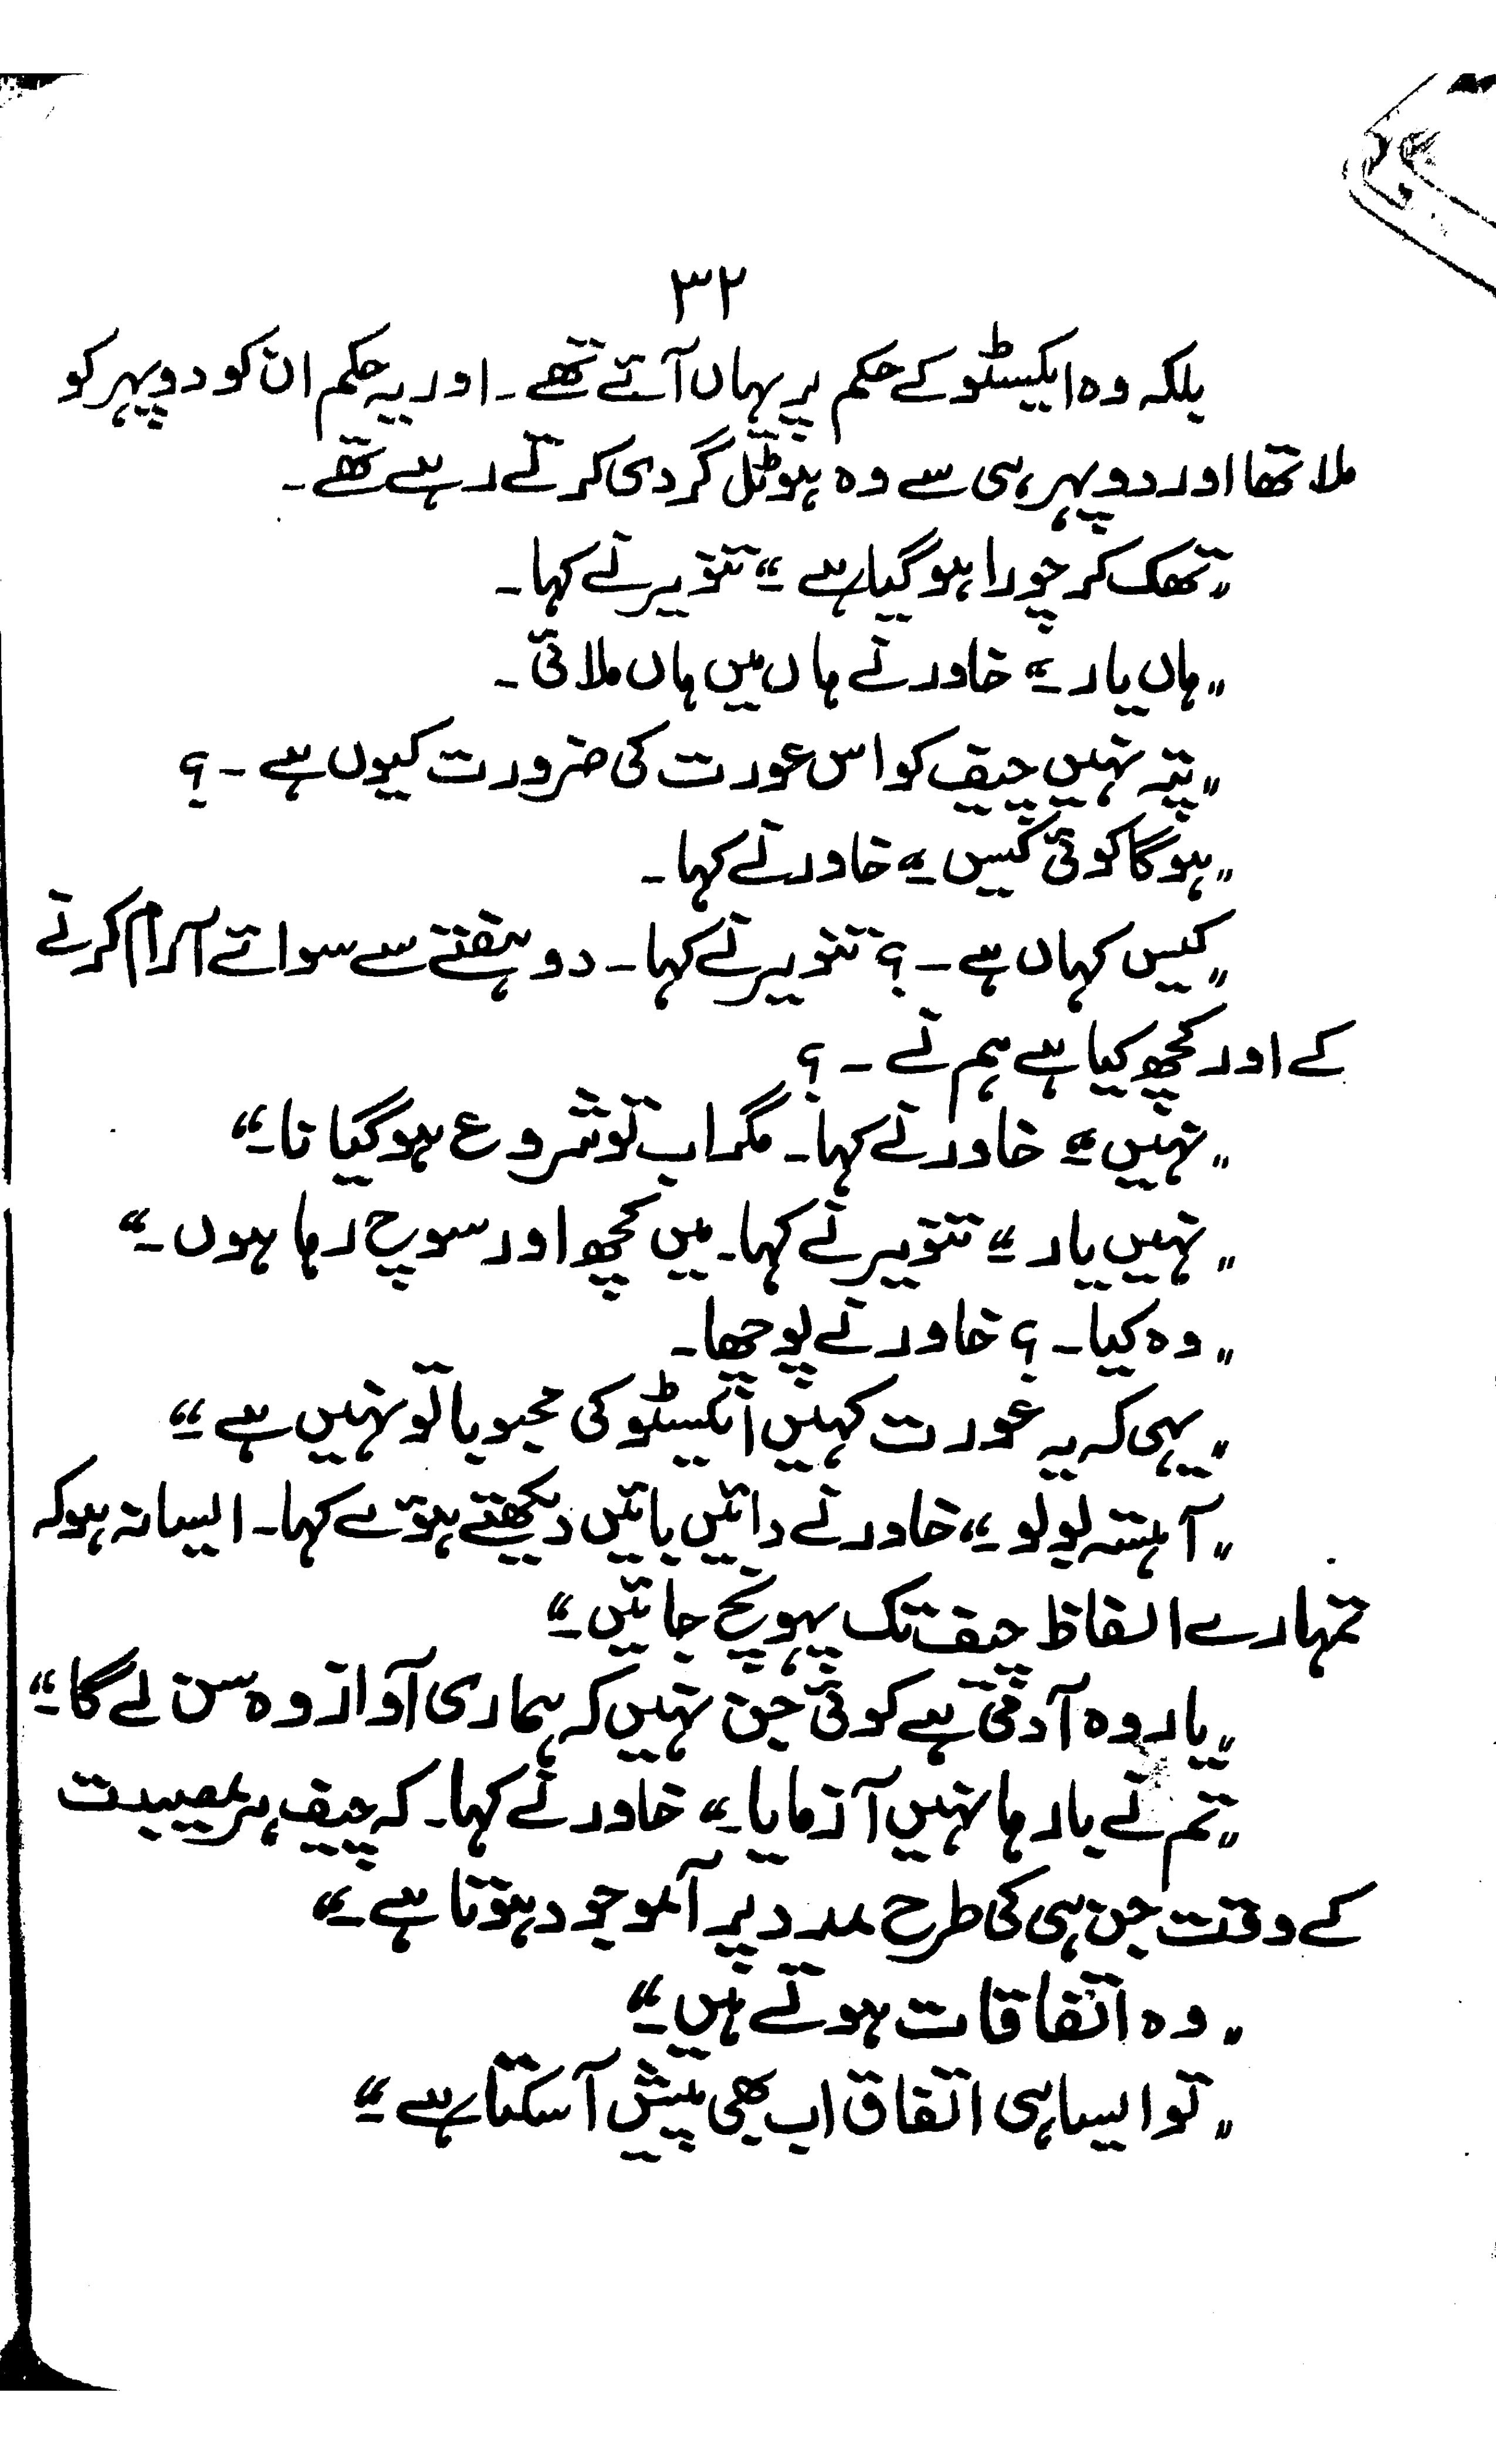 ۳۲
بلکہ وہ ایکسٹو کے حکم پر یہاں آئے تھے ۔ اور یہ حکم ان کو دوپہر کو
ملا تھا اور دوپہر ہی سے وہ ہوٹل گردی کرتے رہے تھے ۔
"تھک کر چورا ہو گیا ہے" تنویر نے کہا ۔
"ہاں یار ۔" خاور نے ہاں میں ہاں ملائی ۔
"پتہ نہیں چیف کو اس عورت کی ضرورت کیوں ہے ۔ ؟
"ہو گا کوئی کیس ۔" خاور نے کہا ۔
"کیس کہاں ہے ۔ ؟ تنویر نے کہا ۔ دو ہفتے سے سوائے آرام کرنے
کے اور کچھ کیا ہے ہم نے ۔ ؟
"نہیں ۔" خاور نے کہا ۔ مگر اب تو شروع ہو گیا نا ۔"
"نہیں یار ۔" تنویر نے کہا ۔ میں کچھ اور سوچ رہا ہوں ۔"
"وہ کیا ۔ ؟ خاور نے پوچھا ۔
"یہی کہ یہ عورت کہیں ایکسٹو کی محبوبا تو نہیں ہے ۔"
"آہستہ بولو ۔" خاور نے دائیں بائیں دیکھتے ہوئے کہا ۔ ایسا نہ ہو کہ
تمہارے الفاظ چیف تک پہونچ جائیں ۔"
"یار وہ آدمی ہے کوئی جن نہیں کہ ہماری آواز وہ سن لے گا ۔"
"تم نے بارہا نہیں آزمایا ۔" خاور نے کہا ۔ کہ چیف ہر مصیبت
کے وقت جن ہی کی طرح مدد پر آموجود ہوتا ہے ۔"
"وہ اتفاقات ہوتے ہیں ۔"
"تو ایسا ہی اتفاق اب بھی پیش آ سکتا ہے ۔"